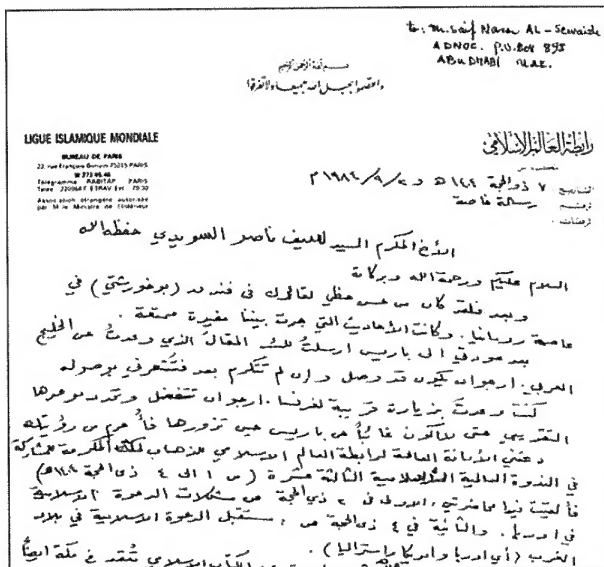 to: M. Saif Naser AL-Sewaidi
ADNOC. P.O.Box 898
ABU DHABI UAE.
بسم الله الرحمن الرحيم
واعتصموا بحبل الله جميعا ولا تفرقوا
LIGUE ISLAMIQUE MONDIALE
BUREAU DE PARIS
22, rue François Bonvin 75015 PARIS
Telegramme RABITAP PARIS
Association étrangère autorisée
par M. le Ministre de l'Intérieur
رابطة العالم الإسلامي
التاريخ : ٧ ذو الحجة ١٤٠٤ هـ و ٢/٩/١٩٨٤ م
رسالة خاصة
الأخ المكرم السيد لسيف ناصر السويدي حفظه الله
السلام عليكم ورحمة الله وبركاته
وبعد فلقد كان من حسن حظي لقاؤك في فندق (بوخورشتي) في
عاصمة رومانيا. وكانت الأحاديث التي جرت بيننا مفيدة ممتعة.
بعد عودتي الى باريس ارسلت لك المقال الذي وعدت عن الخليج
العربي. ارجو ان يكون قد وصل وإن لم تتكرم بعد فتشعرني بوصوله
كنت وعدت بزيارة قريبة لفرنسا. ارجو ان تتفضل وتحدد موعدها
التقريبي حتى لا أكون غائباً عن باريس حين تزورها فأحرم من رؤيتك
دعتني الأمانة العامة لرابطة العالم الاسلامي للذهاب لمكة المكرمة للمشاركة
في الندوة العالمية الاسلامية الثالثة عشرة (من ١ الى ٤ ذي الحجة ١٤٠٤هـ)
فألقيت فيها محاضرتي، الاولى في ٢ ذي الحجة عن مشكلات الدعوة الاسلامية
في اوربا. والثانية في ٤ ذي الحجة عن : مستقبل الدعوة الاسلامية في بلاد
الغرب (أي اوربا وامريكا واستراليا).
الكتاب الاسلامي تنعقد في مكة ايضاً